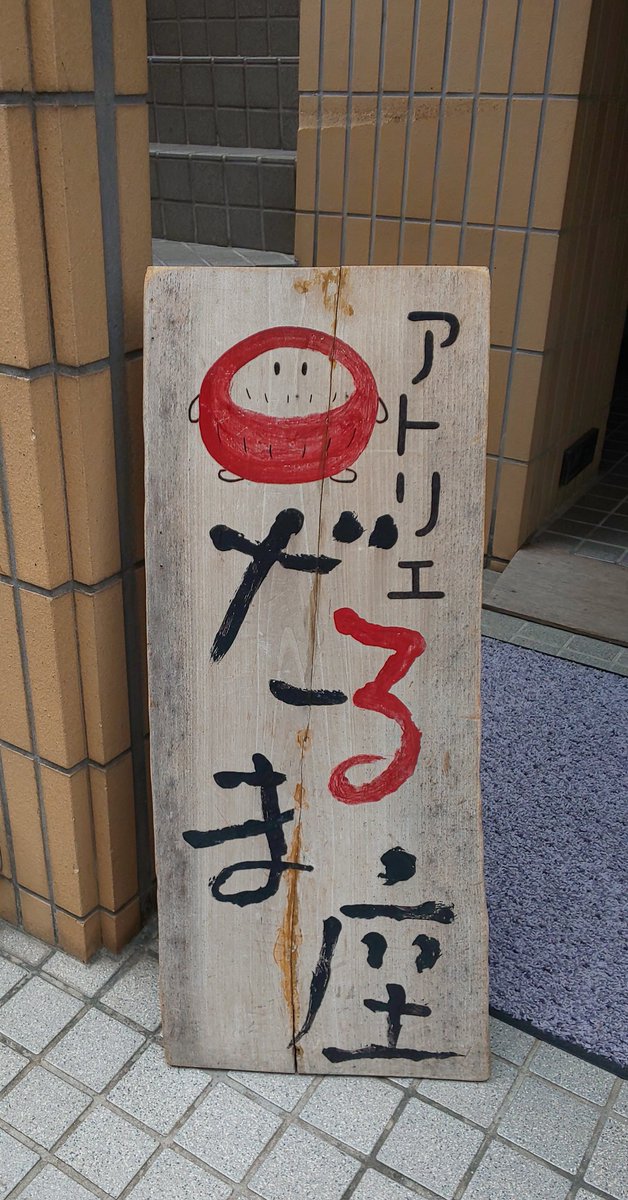 アトリエ
だるま座